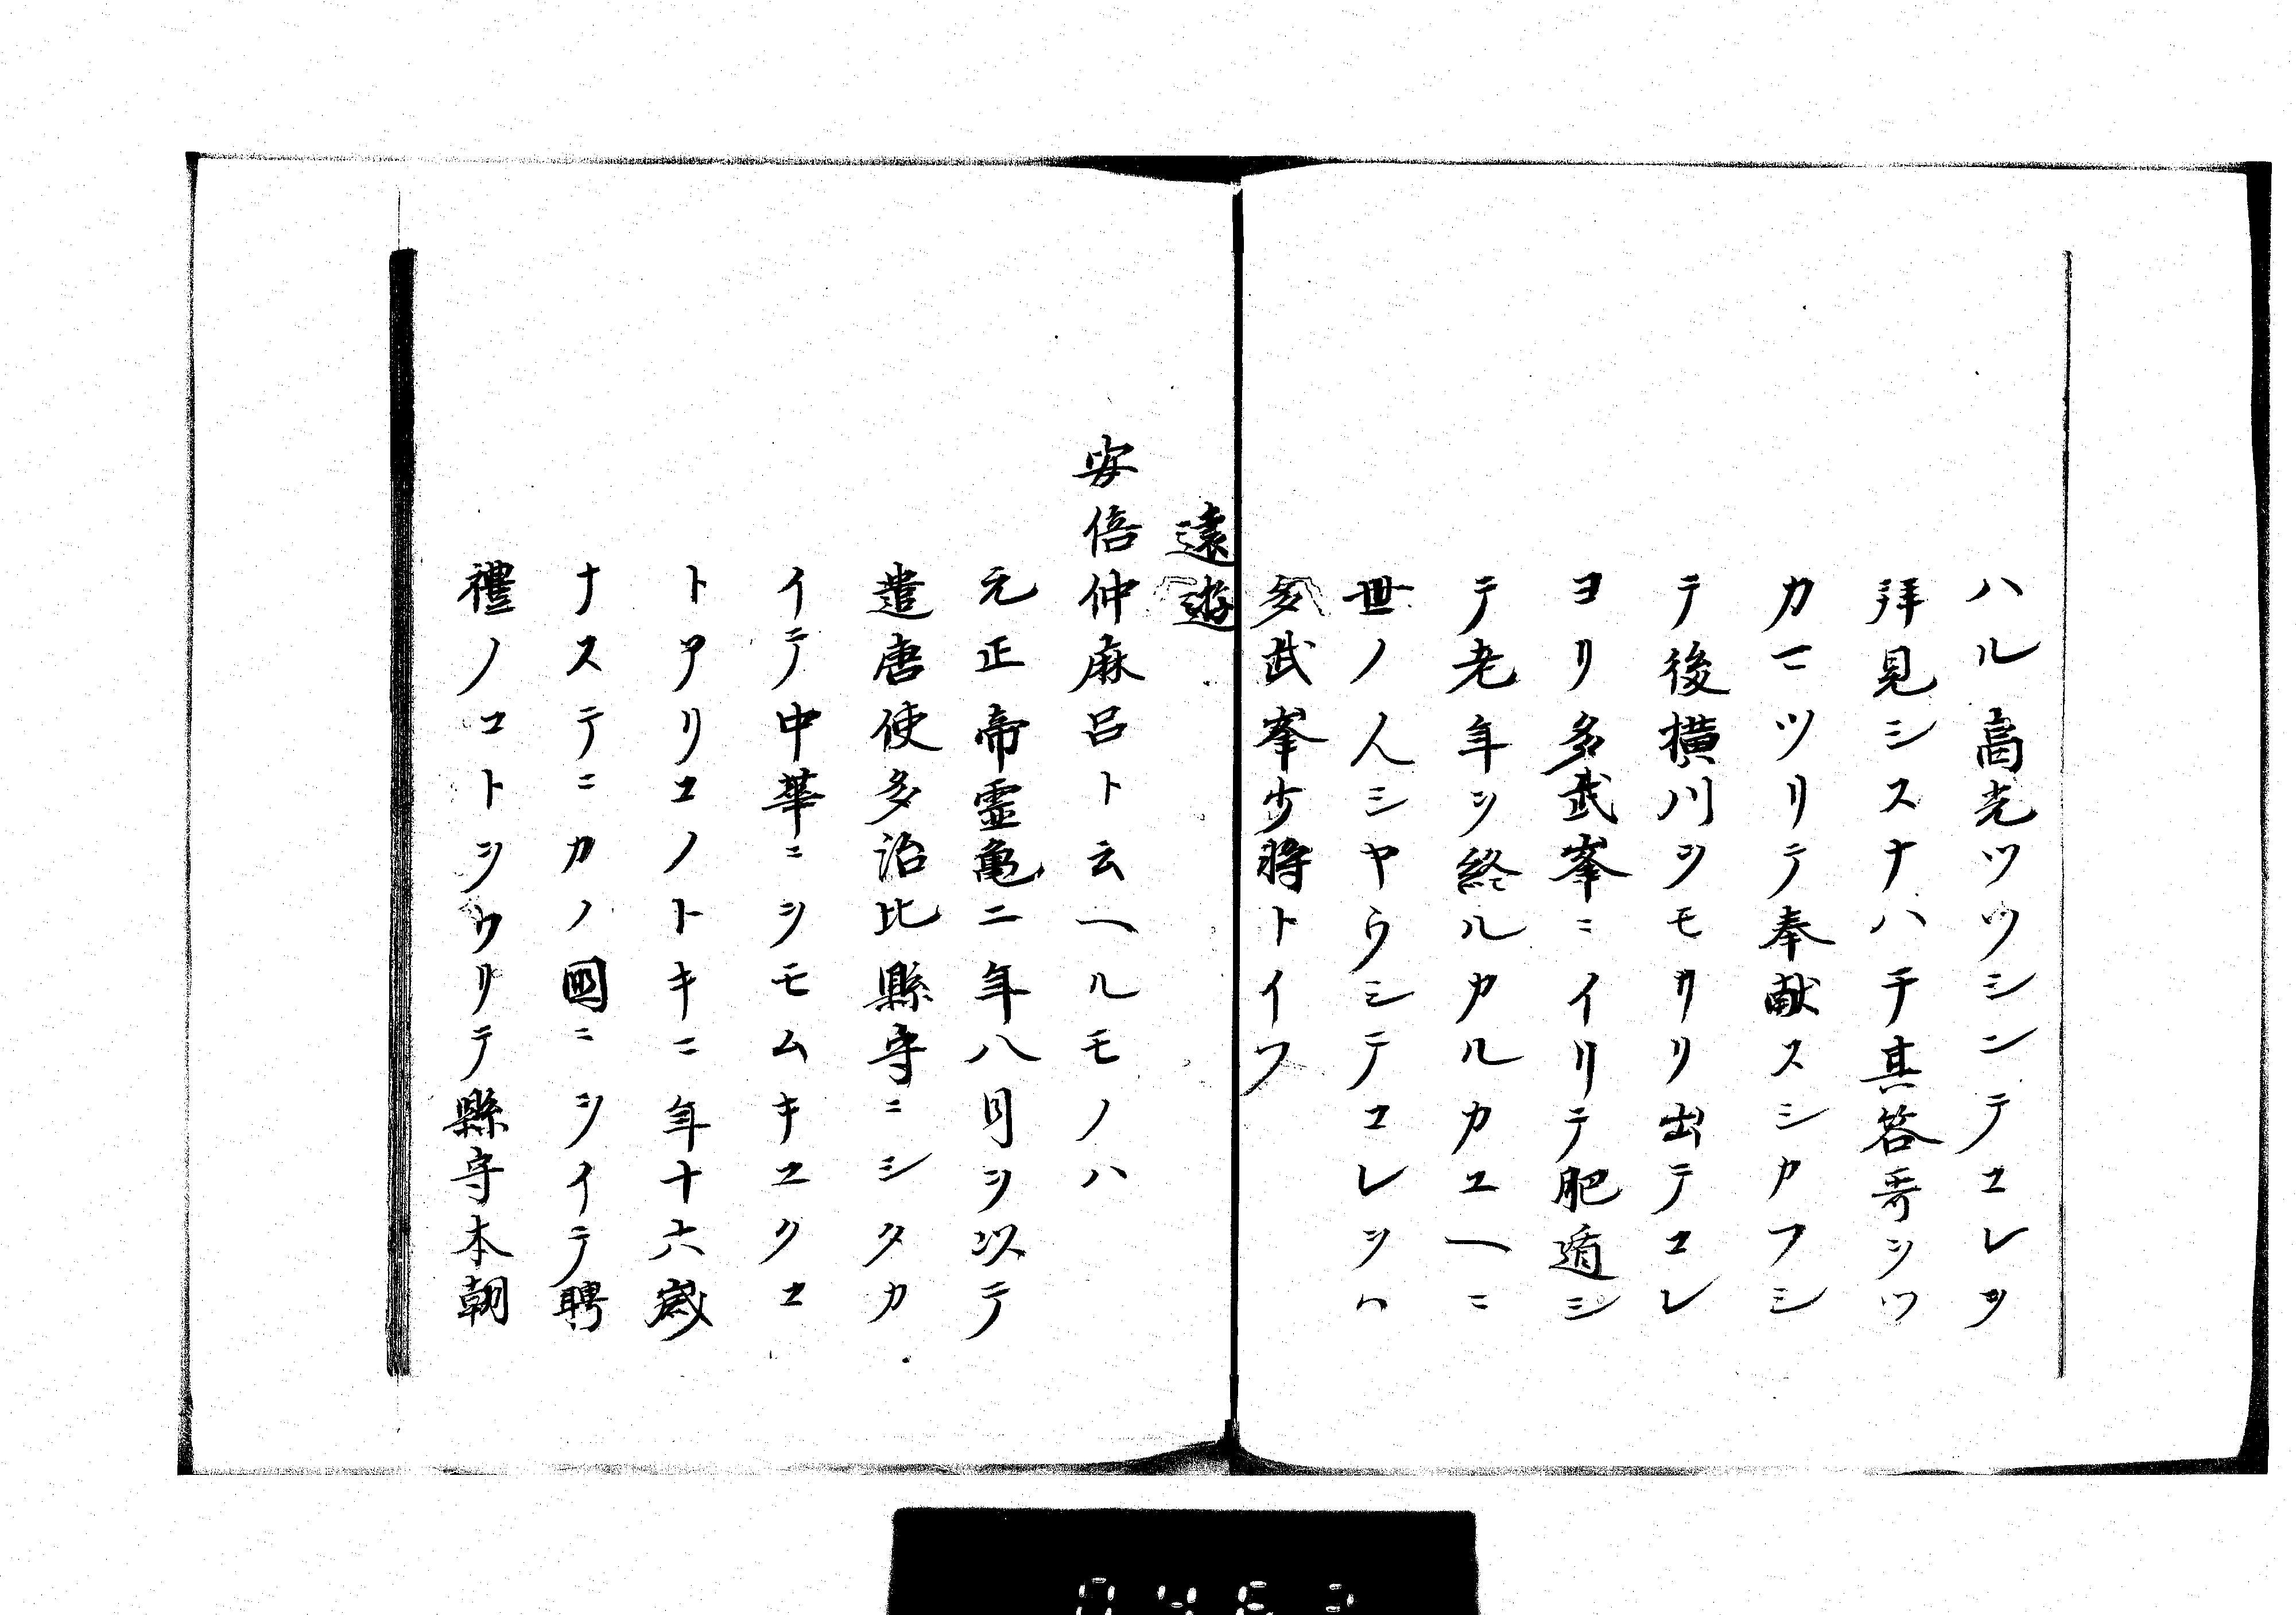 ハル高光ツツシンテコレヲ
拝見シスナハチ其答哥ヲツ
カマツリテ奉献スシカフシ
テ後横川ヲモカリ出テコレ
ヨリ多武峯ニイリテ肥遁シ
テ老年ヲ終ルカルカユヘニ
世ノ人シヤウシテコレヲハ
多武峯少将トイフ
遠遊
安倍仲麻呂ト云ヘルモノハ
元正帝霊亀二年八月ヲ以テ
遣唐使多治比縣守ニシタカ
イテ中華ニヲモムキユクコ
トアリコノトキニ年十六歳
ナステニカノ國ニヲイテ聘
禮ノコトヲワリテ縣守本朝